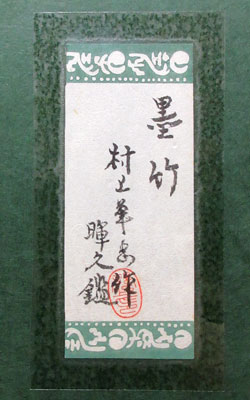 墨竹
村上華岳作
暉之鑑